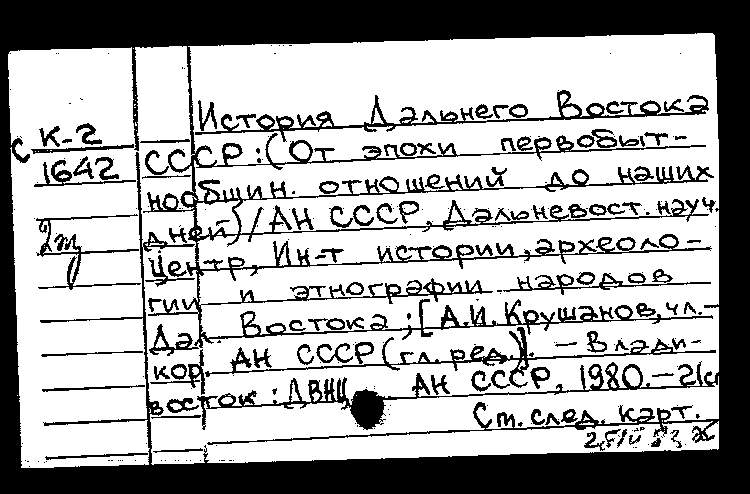 История Дальнего Востока
С К-2
1642
СССР : (От эпохи первобыт-
нообщин. отношений до наших
дней) / АН СССР, Дальневост. науч.
центр, Ин-т истории, археоло-
гии и этнографии народов
Дал. Востока ; [А.И. Крушанов, чл.-
кор. АН СССР (гл. ред.)]. – Влади-
восток : ДВНЦ АН СССР, 1980. – 21см
См. след. карт.